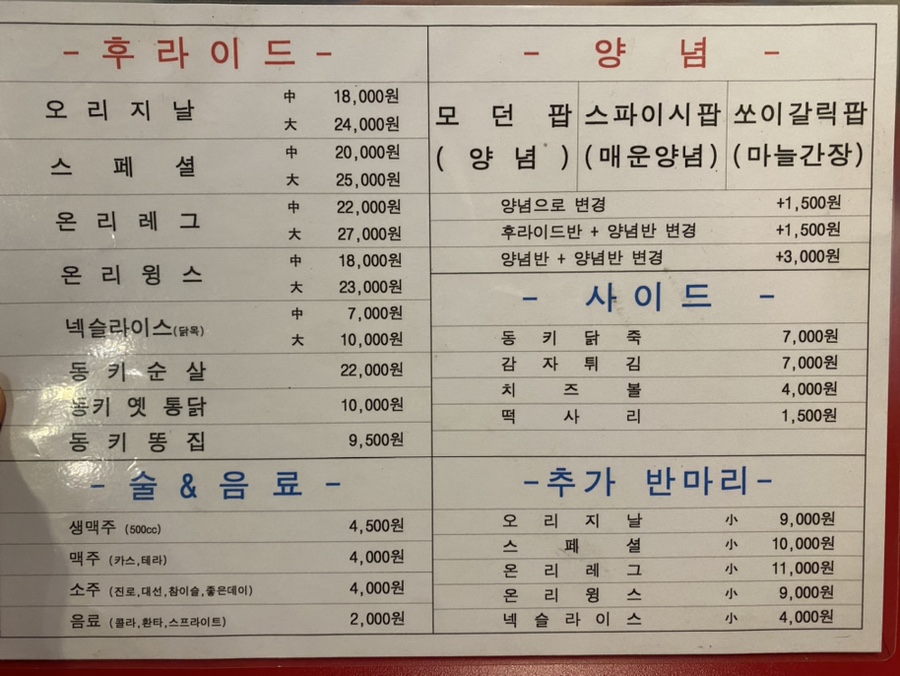 - 후라이드 -
오리지날 中 18,000원
大 24,000원
스페셜 中 20,000원
大 25,000원
온리레그 中 22,000원
大 27,000원
온리윙스 中 18,000원
大 23,000원
넥슬라이스(닭목) 中 7,000원
大 10,000원
동키순살 22,000원
동키 옛 통닭 10,000원
동키똥집 9,500원
- 술 & 음료 -
생맥주 (500cc) 4,500원
맥주 (카스,테라) 4,000원
소주 (진로,대선,참이슬,좋은데이) 4,000원
음료 (콜라,환타,스프라이트) 2,000원
- 양념 -
모던팝 스파이시팝 쏘이갈릭팝
(양념) (매운양념) (마늘간장)
양념으로 변경 +1,500원
후라이드반 + 양념반 변경 +1,500원
양념반 + 양념반 변경 +3,000원
- 사이드 -
동키닭죽 7,000원
감자튀김 7,000원
치즈볼 4,000원
떡사리 1,500원
-추가 반마리-
오리지날 小 9,000원
스페셜 小 10,000원
온리레그 小 11,000원
온리윙스 小 9,000원
넥슬라이스 小 4,000원